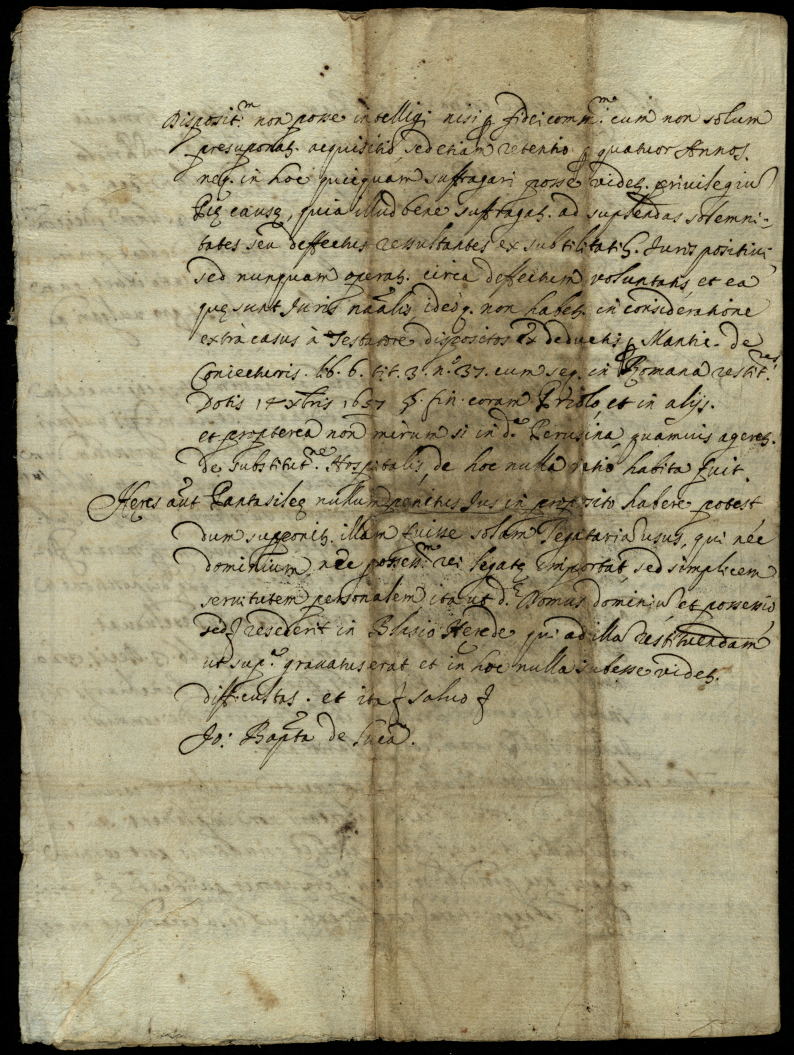 Disposit.m non posse intelligi nisi p fideicomm.m cum non solum
presuponat. acquisitio, sed etiam retentio p quatuor Annos.
neq. in hoc quicquam suffragari posse videt. privilegiū
Pię causę, quia illud bene suffragat. ad suplendas solemni-
tates seu deffectus resultantes ex subtilitatib. Juris positivi,
sed nunquam operat. circa deffectum voluntatis et ea
quę sunt Juris nãalis ideoq. non habet. in consideratione
extrà casus à Testatore dispositos ex deductis p Mantic. de
Coniecturis. lib. 6. tit. 3. n.o 37. cum seq. in Romana restit.nis
Dotis 14 Xbris 1657 §. fin. coram Priolo, et in alijs.
et propterea non mirum si in d.a Perusina quamuis ageret.
de substitut.ne Hospitalis, de hoc nulla ratio habita fuit.
Heres aũt Pantasileę nullum penitus Jus in proposito habere potest
dum suponit. illam fuisse solam legatariā usus, qui nec
dominium, nec possess.m rei legatę importat, sed simplicem
servitutem personalem ita ut d.ę Domus dominiū et possessio
resederit in Blasio Herede qui ad illā restituendam
ut sup.a gravatus erat et in hoc nulla subesse videt.
difficultas. et ita salvo
Jo: Bapta de Luca.